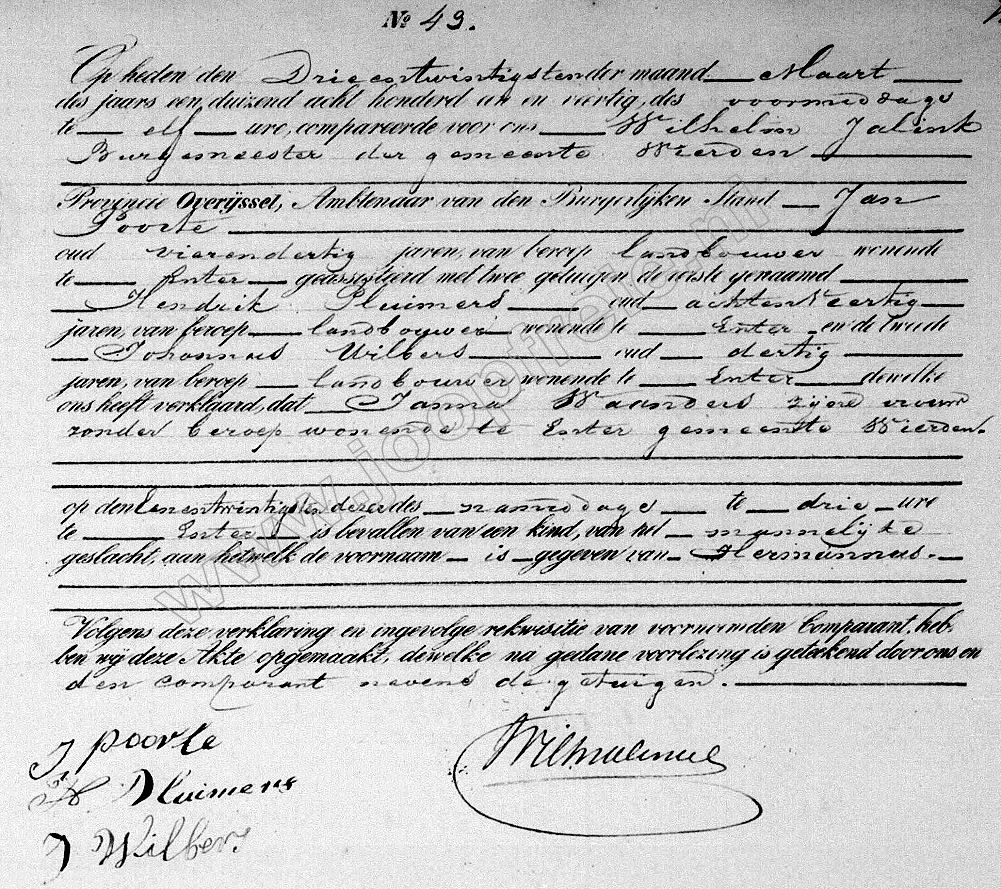 No 49.
Op heden den Drieentwintigsten der maand Maart
des jaars een duizend acht honderd un en viertig, des voormiddags
te elf ure, compareerde voor ons Wilhelm Jalink
Burgemeester der gemeente Wierden
Provincie Overijssel, Ambtenaar van den Burgerlijken Stand Jan
Poorte
oud vierendertig jaren, van beroep landbouwer wonende
te Enter geassisteerd met twee getuigen de eerste genaamd
Hendrik Pluimers oud achtenveertig
jaren, van beroep landbouwer wonende te Enter en de tweede
Johannus Wilbers oud dertig
jaren, van beroep landbouwer wonende te Enter dewelke
ons heeft verklaard, dat Janna Waanders zijne vrouw
zonder beroep wonende te Enter gemeente Wierden.
op den Eenentwintigsten dezer des namiddags te drie ure
te Enter is bevallen van een kind, van het mannelijke
geslacht, aan hetwelk de voornaam is gegeven van Hermannus.
Volgens deze verklaring en ingevolge rekwisitie van voornaamden Comparant, heb-
ben wij deze Akte opgemaakt, dewelke na gedane voorlezing is geteekend door ons en
den comparant nevens de getuigen.
J poorte
H Pluimers
J Wilbers
www.joopfrerol.nl